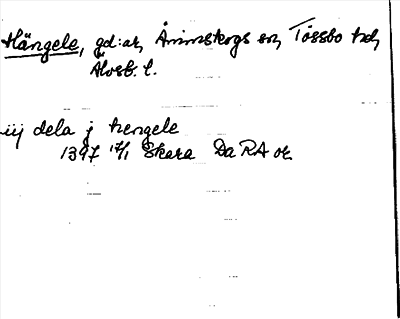 Hängele, gd:ar, Ånimskogs sn, Tössbo hd,
Älvsb. l.
iij dela j hengele
1397 17/1 Skara Da RA or.